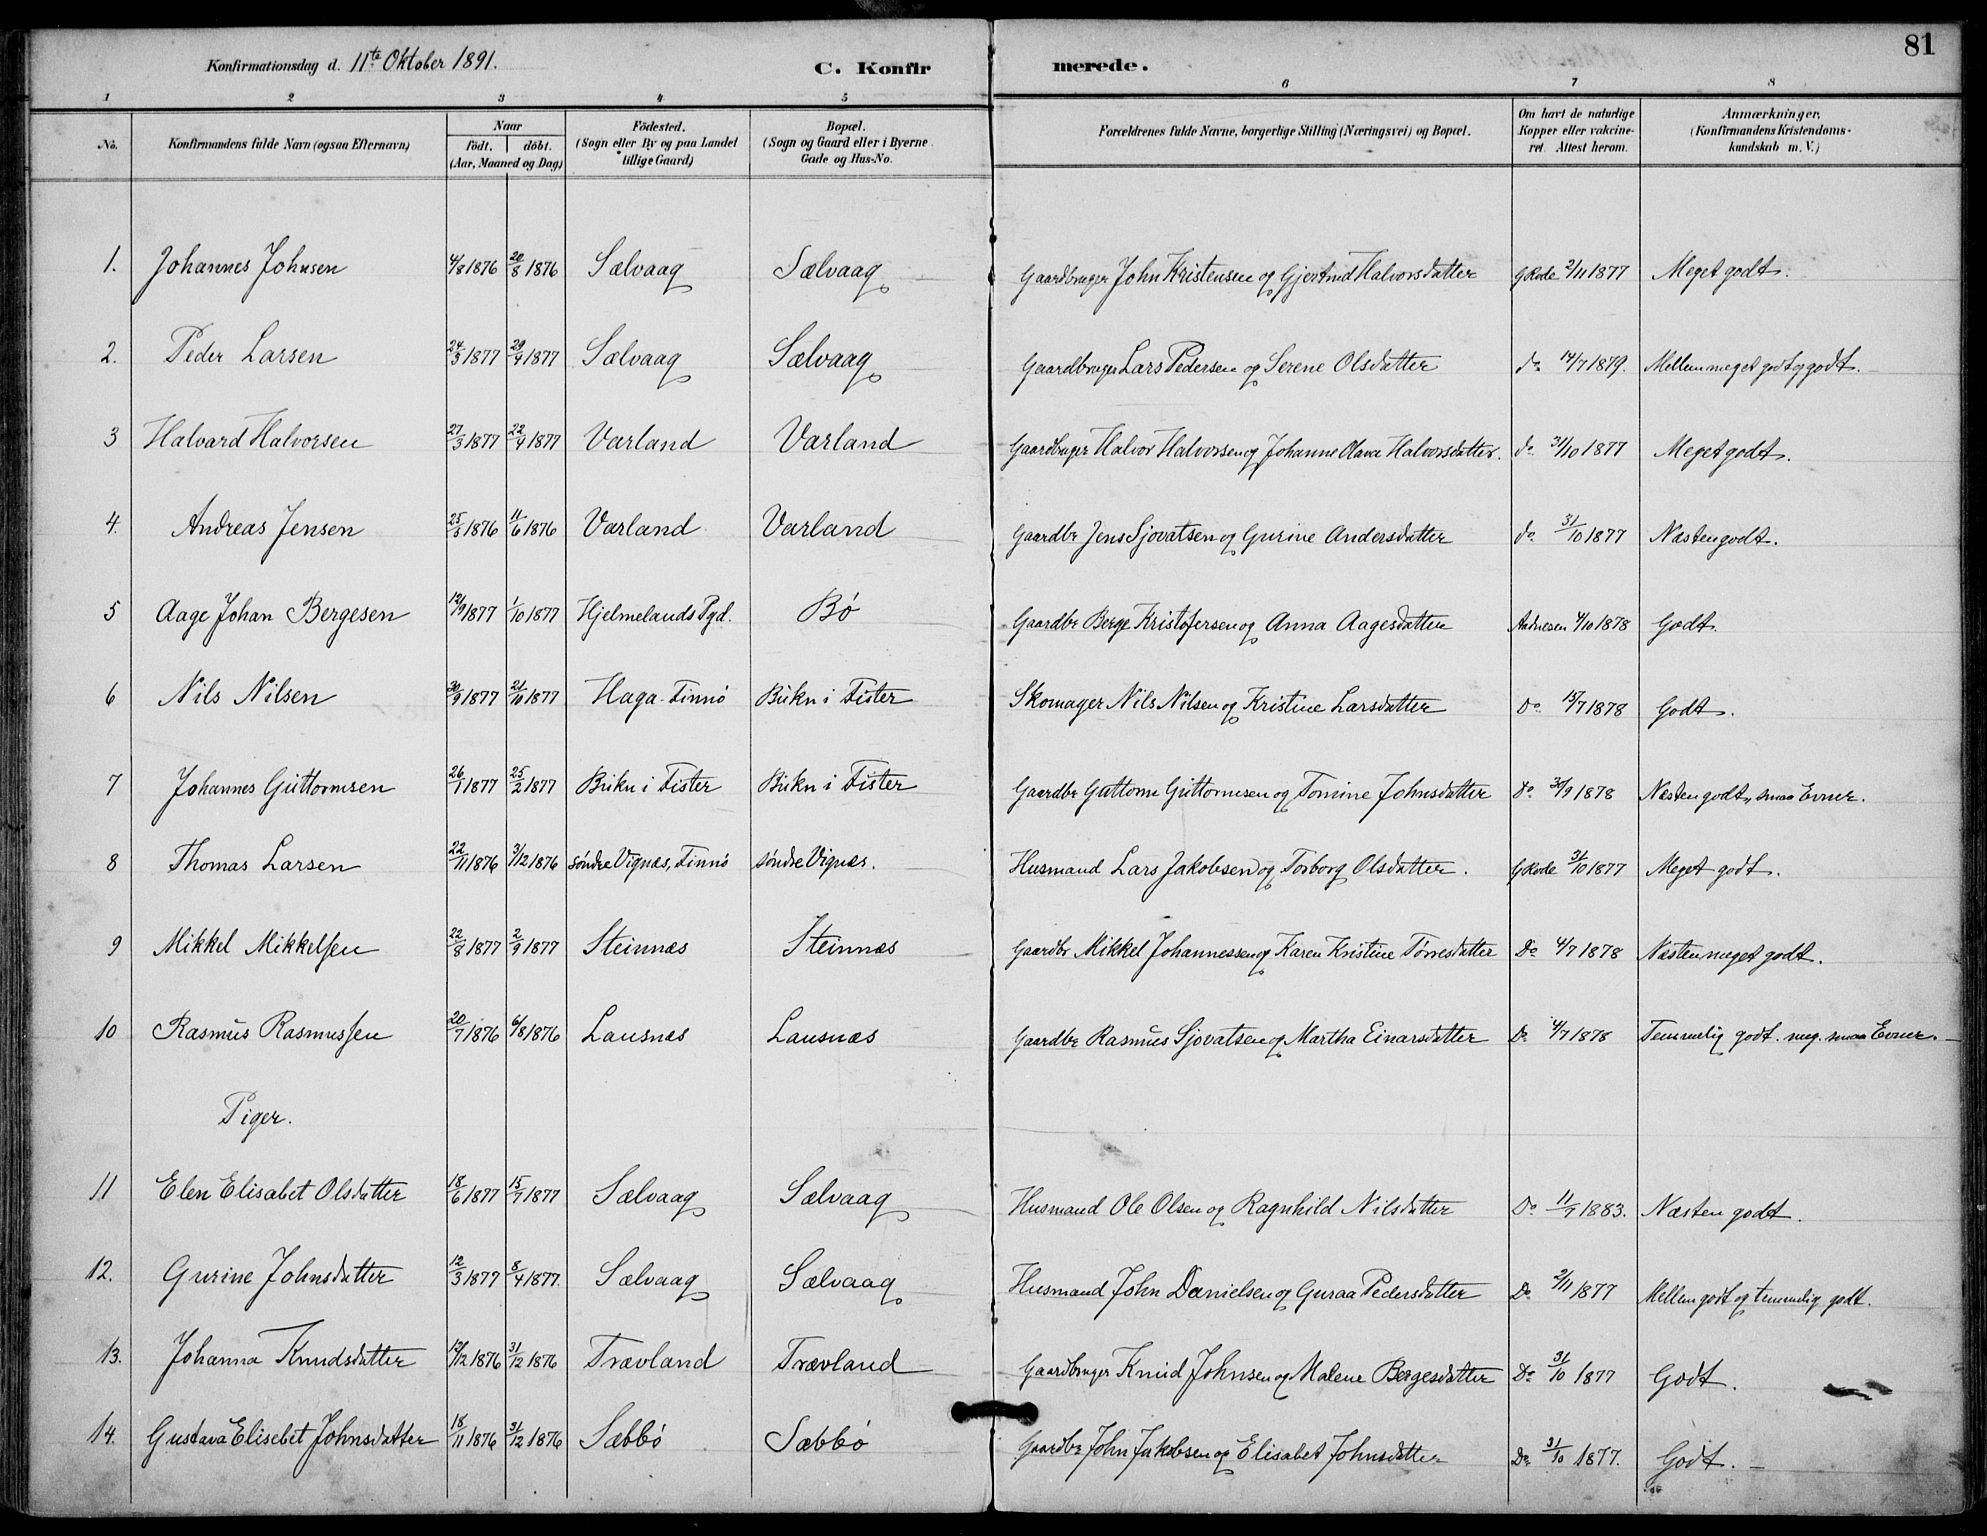 81
Konfirmationsdag d. 11te Oktober 1891. C. Konfirmerede.
1 2 3 4 5 6 7 8
No. Konfirmandens fulde Navn (ogsaa Efternavn) Naar födt. döbt. (Aar, Maaned og Dag) Födested. (Sogn eller By og paa Landet tillige Gaard) Bopæl. (Sogn og Gaard eller i Byerne Gade og Hus-No. Forældrenes fulde Navne, borgerlige Stilling (Næringsvei) og Bopæl. Om havt de naturlige Kopper eller vakcineret. Attest herom. Anmærkninger, (Konfirmandens Kristendomskundskab m. V.)
1. Johannes Johnsen 4/8 1876 20/8 1876 Sælvaag Sælvaag Gaardbruger John Kristensen og Gjertrud Halvorsdatter GRode 2/11 1877 Meget godt.
2. Peder Larsen 24/3 1877 29/4 1877 Sælvaag Sælvaag Gaardbruger Lars Pedersen og Serene Olsdatter do 14/7 1879. Mellem meget godt og godt.
3 Halvard Halvorsen 27/3 1877 22/4 1877 Varland Varland Gaardbruger Halvor Halvorsen og Johanne Olava Halvorsdatter. do 31/10 1877 Meget godt.
4. Andreas Jensen 25/5 1876 11/6 1876 Varland Varland Gaardbr Jens Sjovatsen og Gurine Andersdatter do 31/10 1877 Næsten godt.
5 Aage Johan Bergesen 12/9 1877 1/10 1877 Hjelmelands Pgd. Bö Gaardbr Berge Kristofersen og Anna Aagesdatter Aadnesen 4/10 1878 Godt.
6 Nils Nilsen 30/9 1877 21/10 1877 Haga Finnö Bukn i Fister Skomager Nils Nilsen og Kristine Larsdatter Do 15/7 1878 Godt.
7 Johannes Guttormsen 26/1 1877 25/2 1877 Bukn i Fister Bukn i Fister Gaardbr Guttorm Guttormsen og Tomine Johnsdatter Do 30/9 1878 Næsten godt, smaa Evner.
8 Thomas Larsen 22/11 1876 3/12 1876 söndre Vignæs, Finnö söndre Vignæs. Husmand Lars Jakobsen og Torborg Olsdatter. GRode 31/10 1877 Meget godt.
9 Mikkel Mikkelsen 22/8 1877 2/9 1877 Steinnæs Steinnæs Gaardbr Mikkel Johannessen og Karen Kristine Törresdatter Do 4/7 1878 Næsten meget godt.
10 Rasmus Rasmussen 20/7 1876 6/8 1876 Lausnæs Lausnæs Gaardbr Rasmus Sjovatsen og Martha Einarsdatter Do 4/7 1878 Temmelig godt. meg. smaa Evner.
Piger.
11 Elen Elisabet Olsdatter 18/6 1877 15/7 1877 Sælvaag Sælvaag Husmand Ole Olsen og Ragnhild Nilsdatter Do 11/7 1883. Næsten godt.
12. Gurine Johnsdatter 12/3 1877 8/4 1877. Sælvaag Sælvaag Husmand John Danielsen og Guraa Pedersdatter Do 2/11 1877 Mellem godt og temmelig godt.
13. Johanna Knudsdatter 12/12 1876 31/12 1876 Trævland Trævland Gaardbruger Knud Johnsen og Malene Bergesdatter Do 31/10 1877 Godt.
14. Gustava Elisebet Johnsdatter 18/11 1876 31/12 1876 Sæbbö Sæbbö Gaardbr John Jakobsen og Elisabet Johnsdatter Do 31/10 1877. Godt.